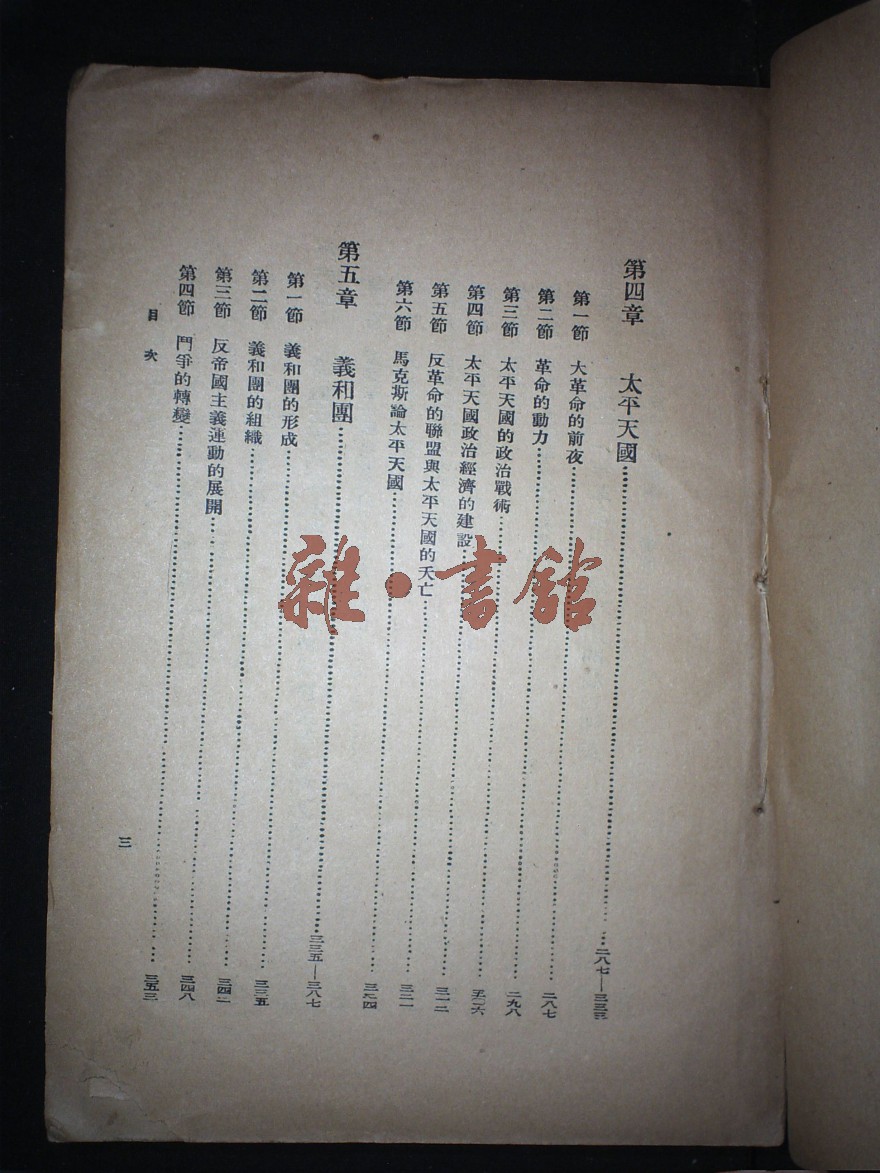 第四章 太平天國……二八七—三三三
第一節 大革命的前夜……二八七
第二節 革命的動力……二九八
第三節 太平天國的政治戰術……
第四節 太平天國政治經濟的建設……三一二
第五節 反革命的聯盟與太平天國的夭亡……三二一
第六節 馬克斯論太平天國……
第五章 義和團……三三五—三八七
第一節 義和團的形成……三三五
第二節 義和團的組織……三四二
第三節 反帝國主義運動的展開……三四八
第四節 鬥爭的轉變……三五三
目次
三
雜·書館